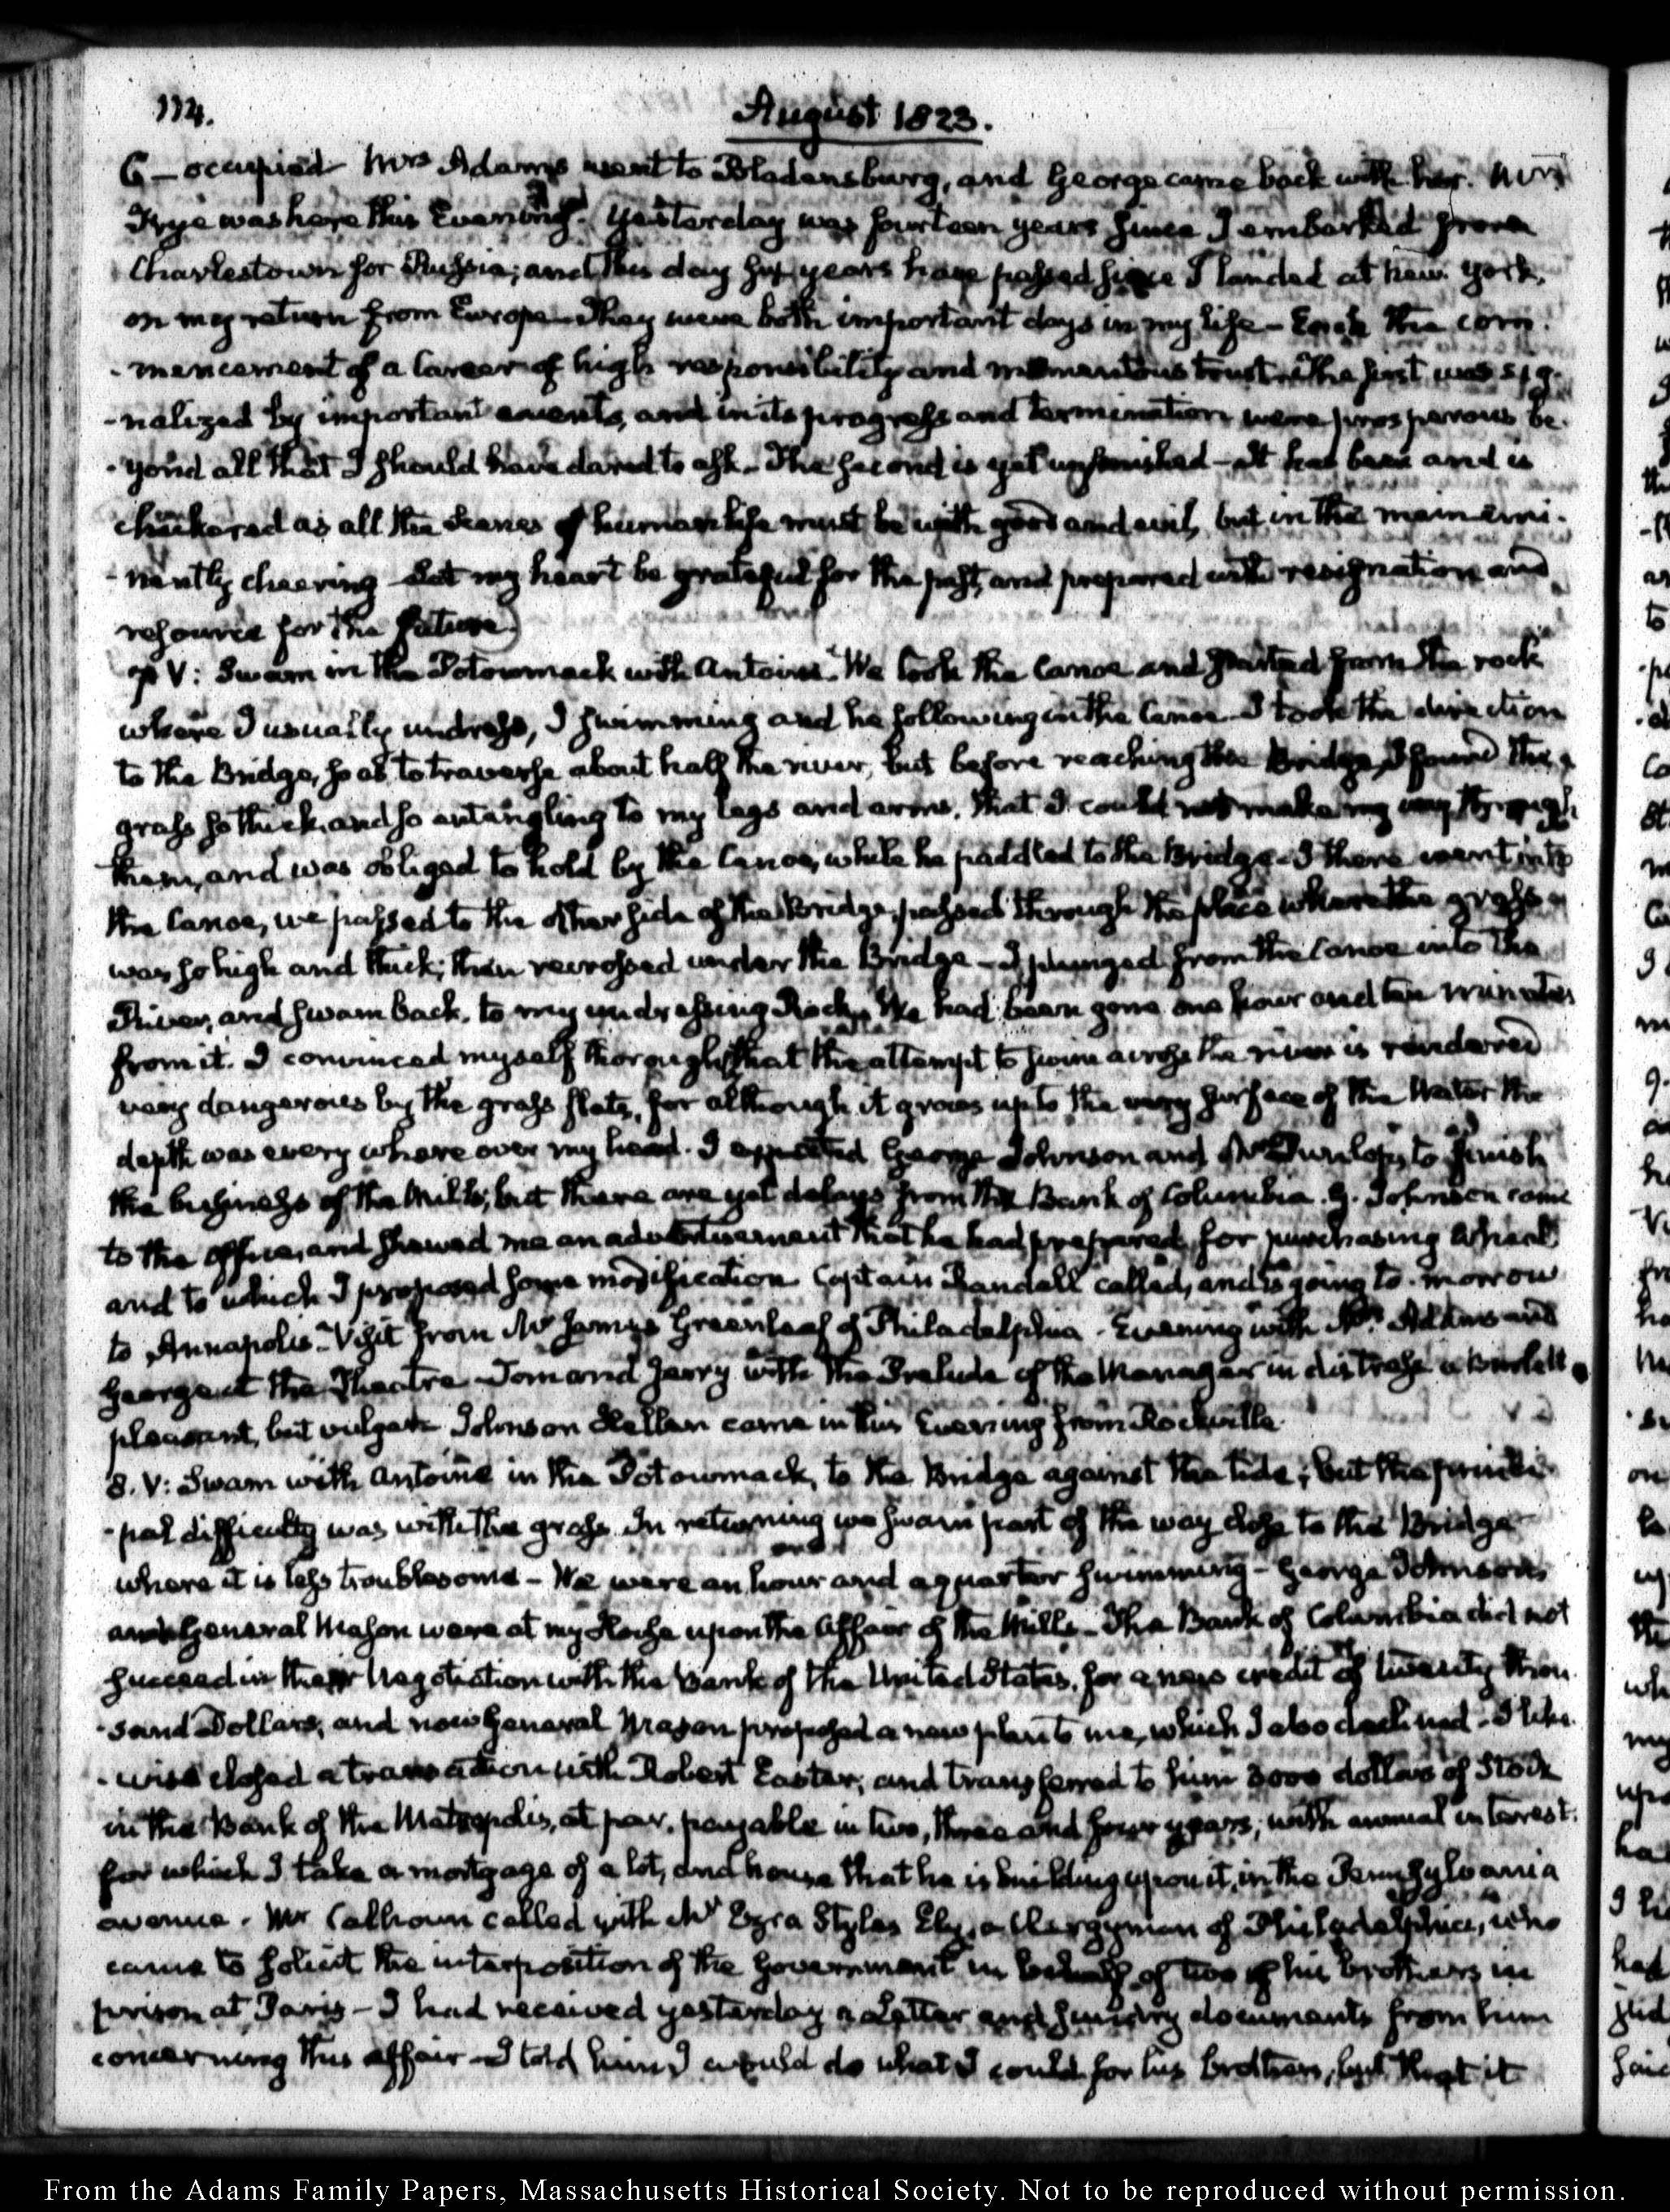 112.
August 1823.
6 — occupied Mrs Adams went to Bladensburg, and George came back with her. Mrs
Frye was here this Evening. Yesterday was fourteen years since I embarked from
Charlestown for Russia; and this day six years have passed since I landed at New York,
on my return from Europe — They were both important days in my life — Each the com-
-mencement of a career of high responsibility and momentous trust. The first was sig-
-nalized by important events, and in its progress and termination were prosperous be-
-yond all that I should have dared to ask — The second is yet unfinished — it has been and is
chackered as all the scenes of human life must be with good and evil, but in the main emi-
-nently cheering — Let my heart be grateful for the past, and prepared with resignation and
resource for the future.
7 V: Swam in the Potowmack with Antoine. We took the Canoe and started from the rock
where I usually undress, I swimming and he following in the Canoe. I took the direction
to the Bridge, so as to traverse about half the river, but before reaching the Bridge, I found the
grass so thick, and so entangling to my legs and arms, that I could not make my way through
them, and was obliged to hold by the Canoe, while he paddled to the Bridge — I there went into
the Canoe, we passed to the other side of the Bridge, passed through the place where the grass
was so high and thick; then recrossed under the Bridge — I plunged from the Canoe into the
River, and swam back, to my undressing Rock. We had been gone one hour and ten minutes
from it. I convinced myself thoroughly that the attempt to swim across the river is rendered
very dangerous by the grass flats, for although it grows up to the very surface of the Water the
depth was every where over my head. I expected George Johnson and Mr Dunlop, to finish
the business of the Mills; but there are yet delays from the Bank of Columbia. G. Johnson came
to the Office, and shewed me an advertisement that he had prepared, for purchasing Wheat
and to which I proposed some modification Captain Randall called, and is going to-morrow
to Annapolis — Visit from Mr James Greenleaf of Philadelphia — Evening with Mrs Adams and
George at the Theatre — Tom and Jerry with the Prelude of the Manager in distress a Burlett.
pleasant, but vulgar. Johnson Hellen came in this Evening from Rockville
8. V: Swam with Antoine in the Potowmack, to the Bridge against the tide; but the princi-
-pal difficulty was with the grass. In returning we swam part of the way close to the Bridge
where it is less troublesome — We were an hour and a quarter swimming — George Johnson
and General Mason were at my House upon the Affair of the Mills — The Bank of Columbia did not
succeed in their Negotiation with the Bank of the United States, for a new credit of twenty thou-
-sand Dollars, and now General Mason proposed a new plan to me, which I also declined — I like-
-wise closed a transaction with Robert Easter, and transferred to him 3000 dollars of Stock
in the Bank of the Metropolis, at par, payable in two, three and four years; with annual interest.
for which I take a mortgage of a lot, and house that he is building upon it, in the Pennsylvania
avenue. Mr Calhoun called with Mr Ezra Styles Ely, a Clergyman of Philadelphia, who
came to solicit the interposition of the Government in behalf of two of his brothers in
prison at Paris — I had received yesterday a Letter and sundry documents from him
concerning this affair — I told him I would do what I could for his brothers, but that it
From the Adams Family Papers, Massachusetts Historical Society. Not to be reproduced without permission.